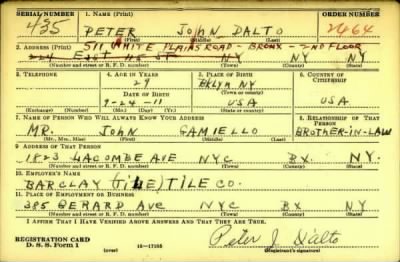 SERIAL NUMBER 1. NAME (Print) ORDER NUMBER
435 PETER JOHN DALTO 2464
(First) (Middle) (Last)
511 WHITE PLAINS ROAD - BRONX - 2ND FLOOR
2. ADDRESS (Print)
EAST ST NY NY
(Number and street or R. F. D. number) (Town) (County) (State)
3. TELEPHONE 4. AGE IN YEARS 5. PLACE OF BIRTH 6. COUNTRY OF CITIZENSHIP
29 BKLYN NY
DATE OF BIRTH (Town or county)
9-24-11 USA USA
(Exchange) (Number) (Mo.) (Day) (Yr.) (State or country)
7. NAME OF PERSON WHO WILL ALWAYS KNOW YOUR ADDRESS 8. RELATIONSHIP OF THAT PERSON
MR. JOHN GAMIELLO BROTHER-IN-LAW
(Mr., Mrs., Miss) (First) (Middle) (Last)
9. ADDRESS OF THAT PERSON
1823 LACOMBE AVE NYC BX. NY.
(Number and street or R. F. D. number) (Town) (County) (State)
10. EMPLOYER'S NAME
BARCLAY (TILE) TILE CO.
11. PLACE OF EMPLOYMENT OR BUSINESS
385 GERARD AVE NYC BX NY
(Number and street or R. F. D. number) (Town) (County) (State)
I AFFIRM THAT I HAVE VERIFIED ABOVE ANSWERS AND THAT THEY ARE TRUE.
REGISTRATION CARD
D. S. S. Form 1 (over) 16-17105 Peter J. Dalto